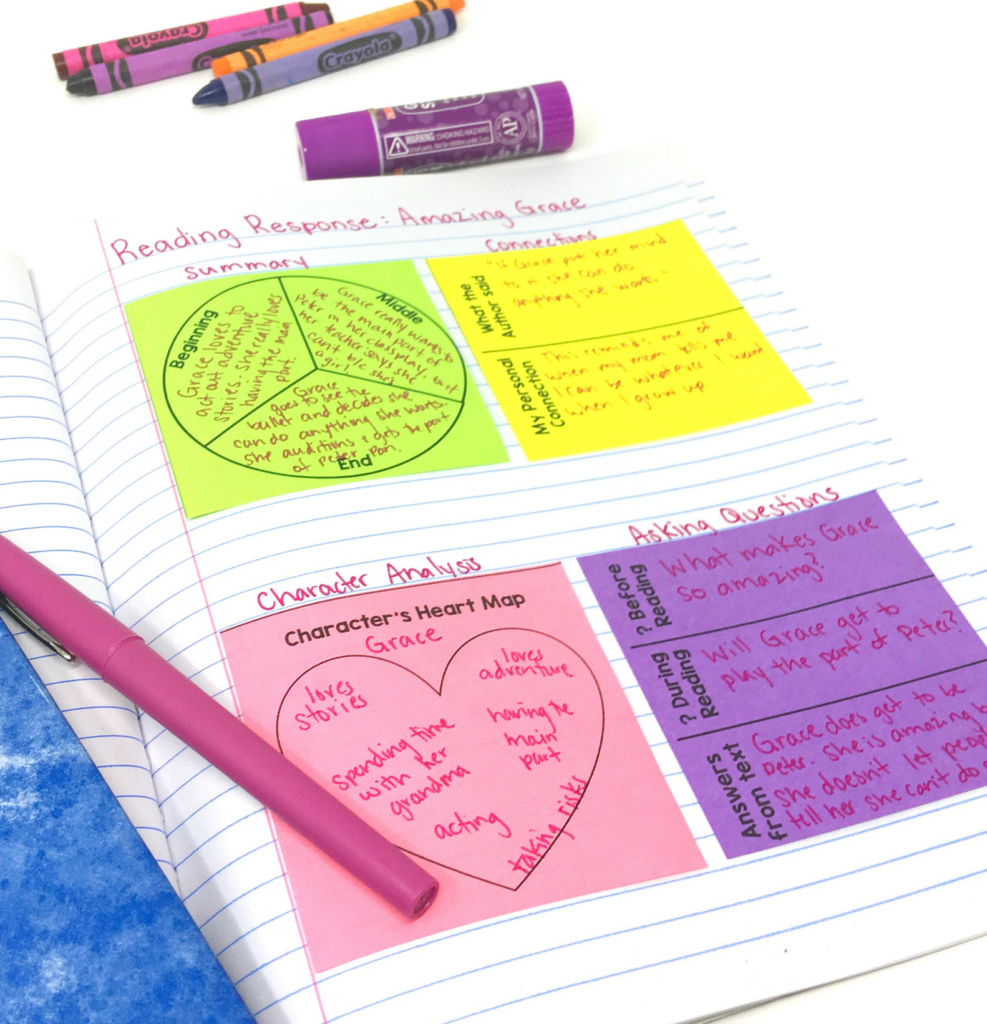 Crayola
Crayola
WARNING: CHOKING HAZARD
AP
Reading Response: Amazing Grace
Summary
Beginning
Grace loves to
act out adventure
stories. she really loves
having the main
part.
Middle
Grace really wants to
be the main part of
Peter in her class play, but
her teacher says she
can't b/c she's
a girl
Grace
goes to see the
ballet and decides she
can do anything she wants.
She auditions & gets the part
of Peter Pan.
End
Connections
What the
Author said
"If Grace put her mind
to it she can do
anything she wants."
My Personal
Connection
This reminds me of
when my mom tells me
I can be whatever I want
when I grow up.
Character Analysis
Character's Heart Map
Grace
loves
stories
loves
adventure
spending time
with her
grandma
having the
main
part
acting
taking risks
Asking Questions
? Before
Reading
What makes Grace
so amazing?
? During
Reading
Will Grace get to
play the part of Peter?
Answers
from text
Grace does get to be
Peter. She is amazing
she doesn't let
tell her she can't do